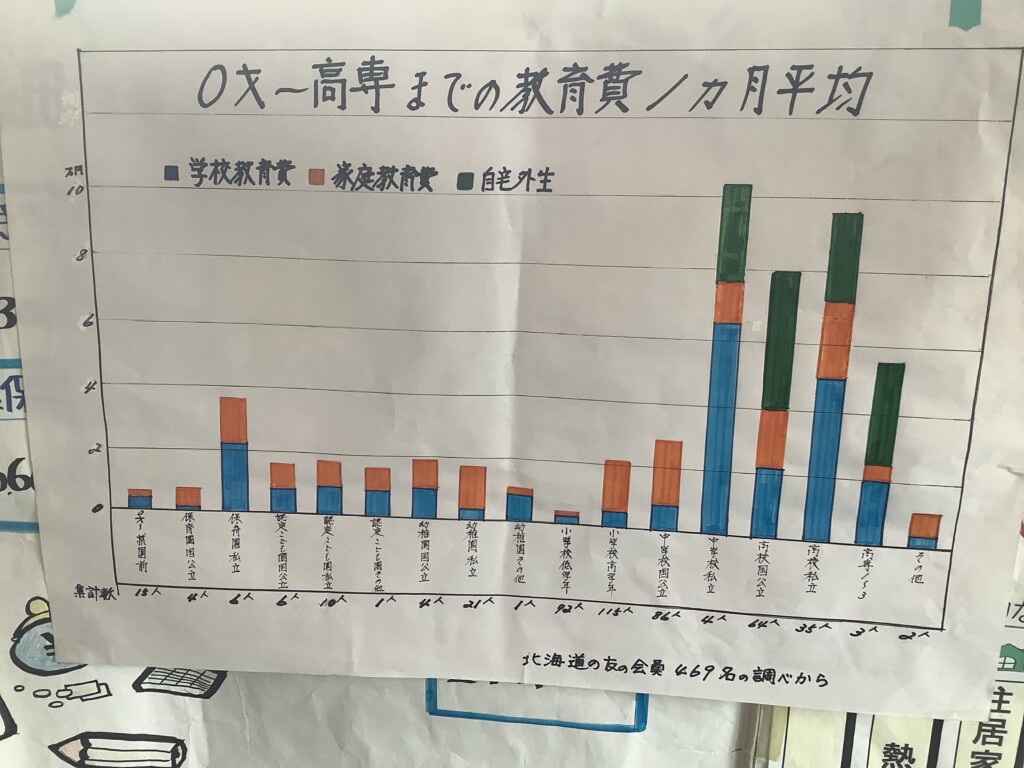 0才~高専までの教育費1カ月平均
学校教育費 家庭教育費 自宅外生
万円
10
8
6
4
2
0
0才~就園前
保育園国公立
保育園私立
認定こども園国公立
認定こども園私立
認定こども園その他
幼稚園国公立
幼稚園私立
幼稚園その他
小学校低学年
小学校高学年
中学校国公立
中学校私立
高校国公立
高校私立
高専1~3
その他
集計数 15人 4人 6人 6人 10人 1人 4人 21人 1人 92人 115人 86人 4人 64人 35人 3人 2人
北海道の友の会員 469名の調べから
3
保
熱
住居家